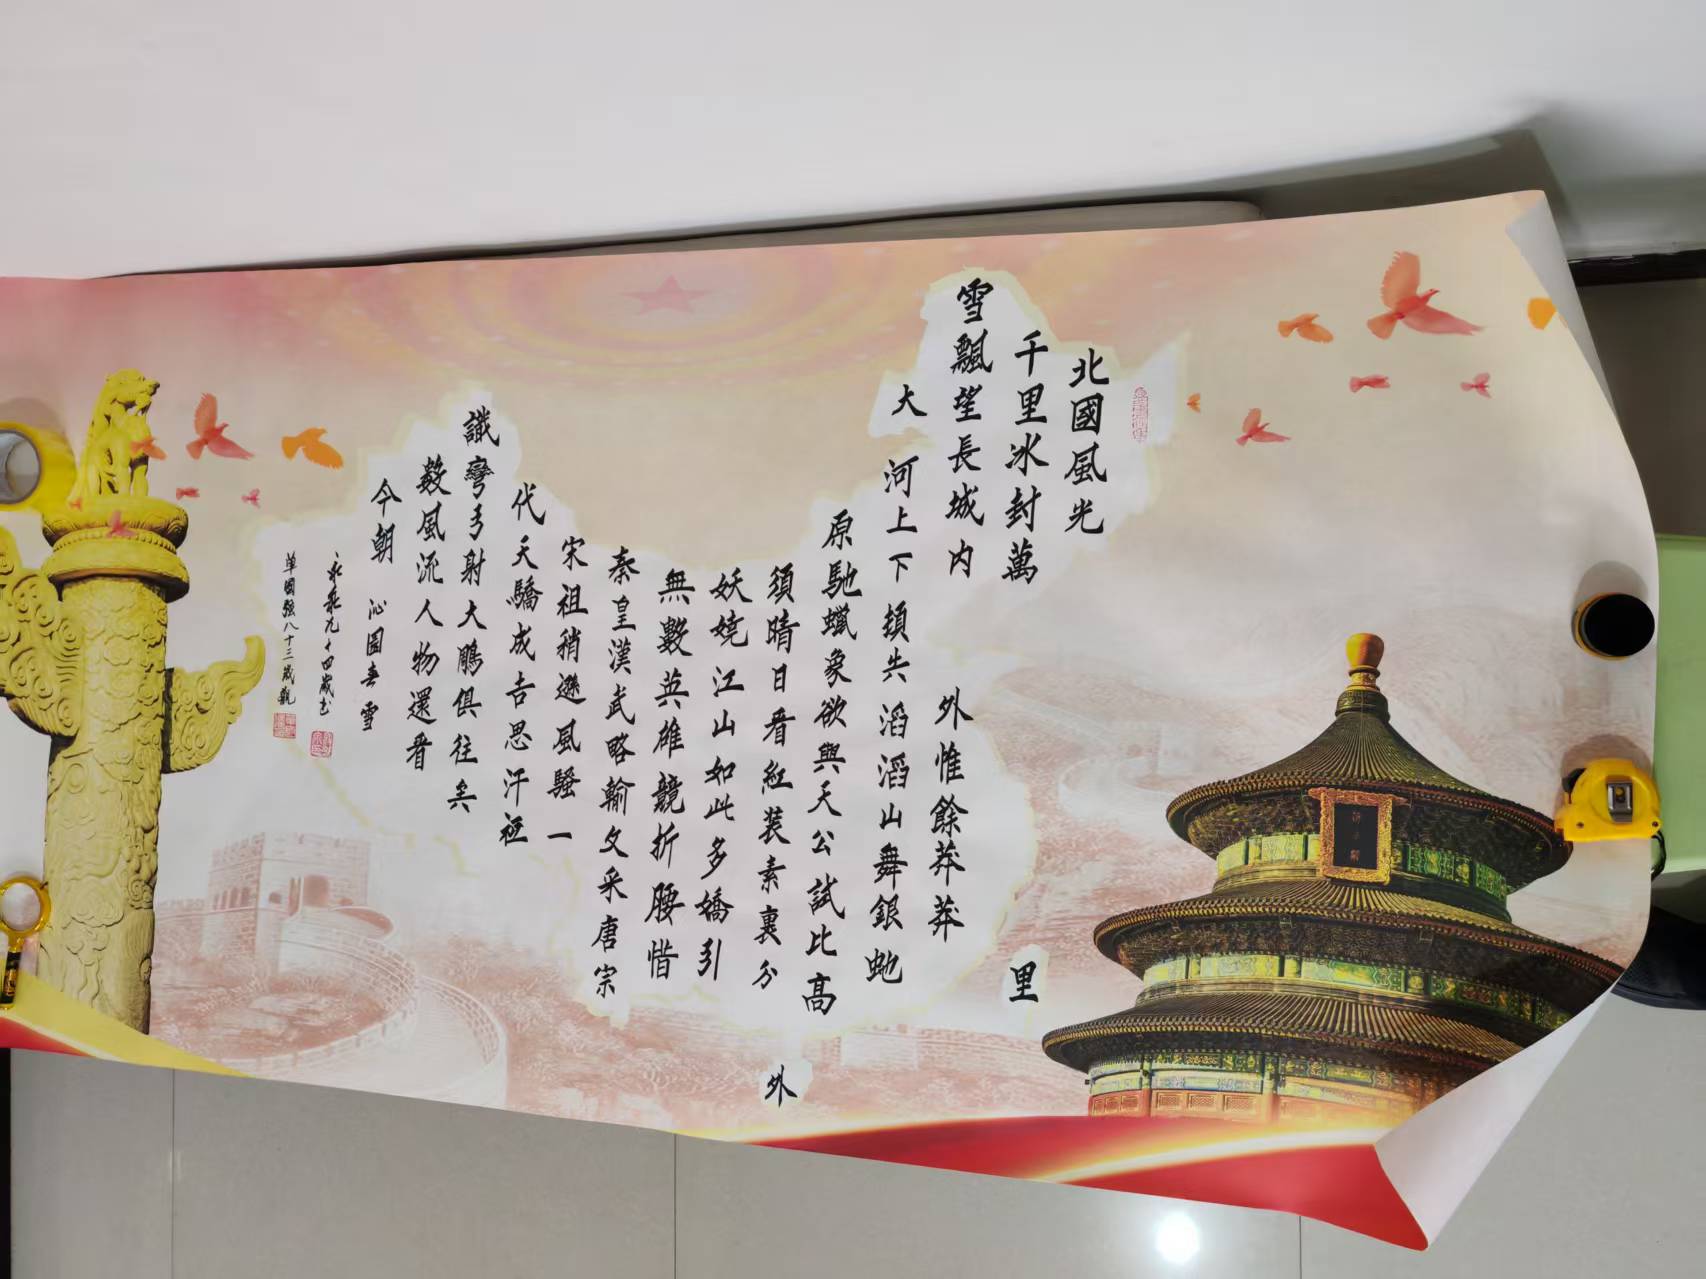 北國風光
千里冰封萬
里
雪飄望長城内
外惟餘莽莽
大河上下頓失滔滔山舞銀蛇
原馳蠟象欲與天公試比高
須晴日看紅装素裹分
外
妖嬈江山如此多嬌引
無數英雄競折腰惜
秦皇漢武略輸文采唐宗
宋祖稍遜風騷一
代天驕成吉思汗祗
識彎弓射大鵰俱往矣
數風流人物還看
今朝
沁園春雪
九十四歲书
單國强八十三歲觀